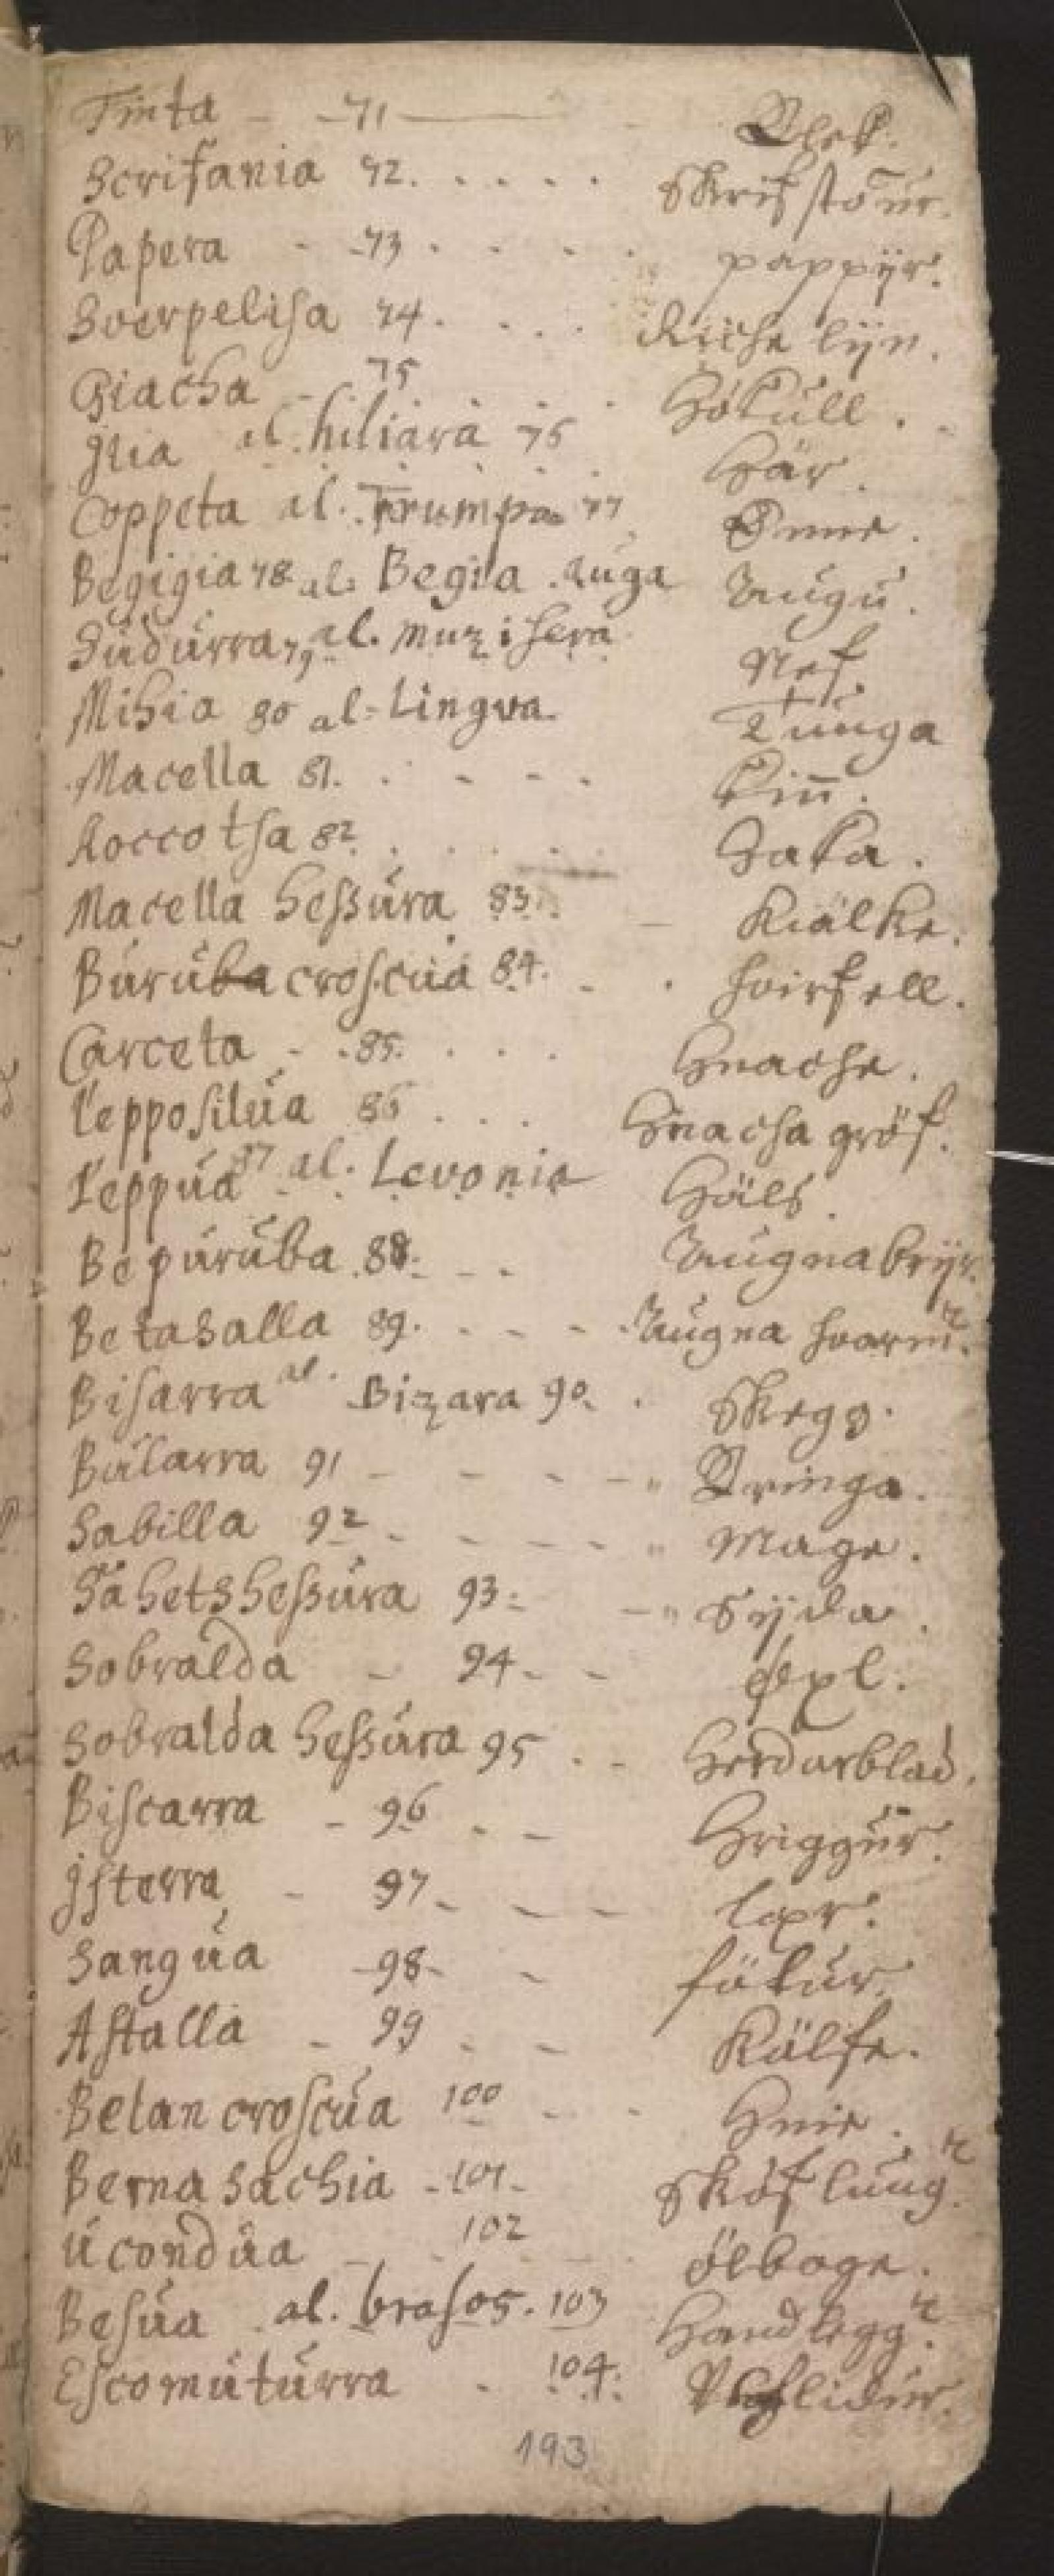 Tinta - 71 Blek.
Scrifania 72. . . . . Skrifstöür.
Papera - 73 . . . . pappÿr.
Soerpelisa 74. . . . Riiche lÿn.
Giacha - 75 . . . Höküll.
Jlia al. hiliara 76 Här.
Coppeta al. Trumpa 77 Enne.
Begigia 78 al. Begia . auga Augu.
Südürra 79 al. muzisera Nef.
Mihia 80 al. Lingva. Tunga
Macella 81. . - - - Kin̄.
Koccotsa 82. . . . . Haka.
Macella hessüra 83. - Kiälke.
Bürüba croscüa 84. - . hvirfell.
Carceta - . 85. . . . Hnacke.
Leppo silüa 86 . . . Hnacha gröf.
Leppüa 87 al. Levonia Häls.
Bepürüba 88. - - Augnabrÿr.
Betasalla 89. . - - - Augna hvarm.r
Bisarra al. Bizara 90. . Skegg.
Bularra 91 - - - - Bringa.
Sabilla 92 - - - - Mage.
Sahetshessüra 93. - Sÿda.
Sobralda - 94 - - Øxl.
Sobralda hessüra 95 . . Herdarblad.
Biscarra - 96 - - Hriggür.
Jsterra - 97 - - - lær.
Sangüa - 98 - - fötür.
Astalla - 99 - - Kälfe.
Belan croscüa 100 - - Hnie.
Berna sachia - 101 - Sköflüng.r
Ucondüa - 102 - ölboge.
Besüa al. brasos. 103 Handlegg.r
Escomütürra - 104. lidür.
193